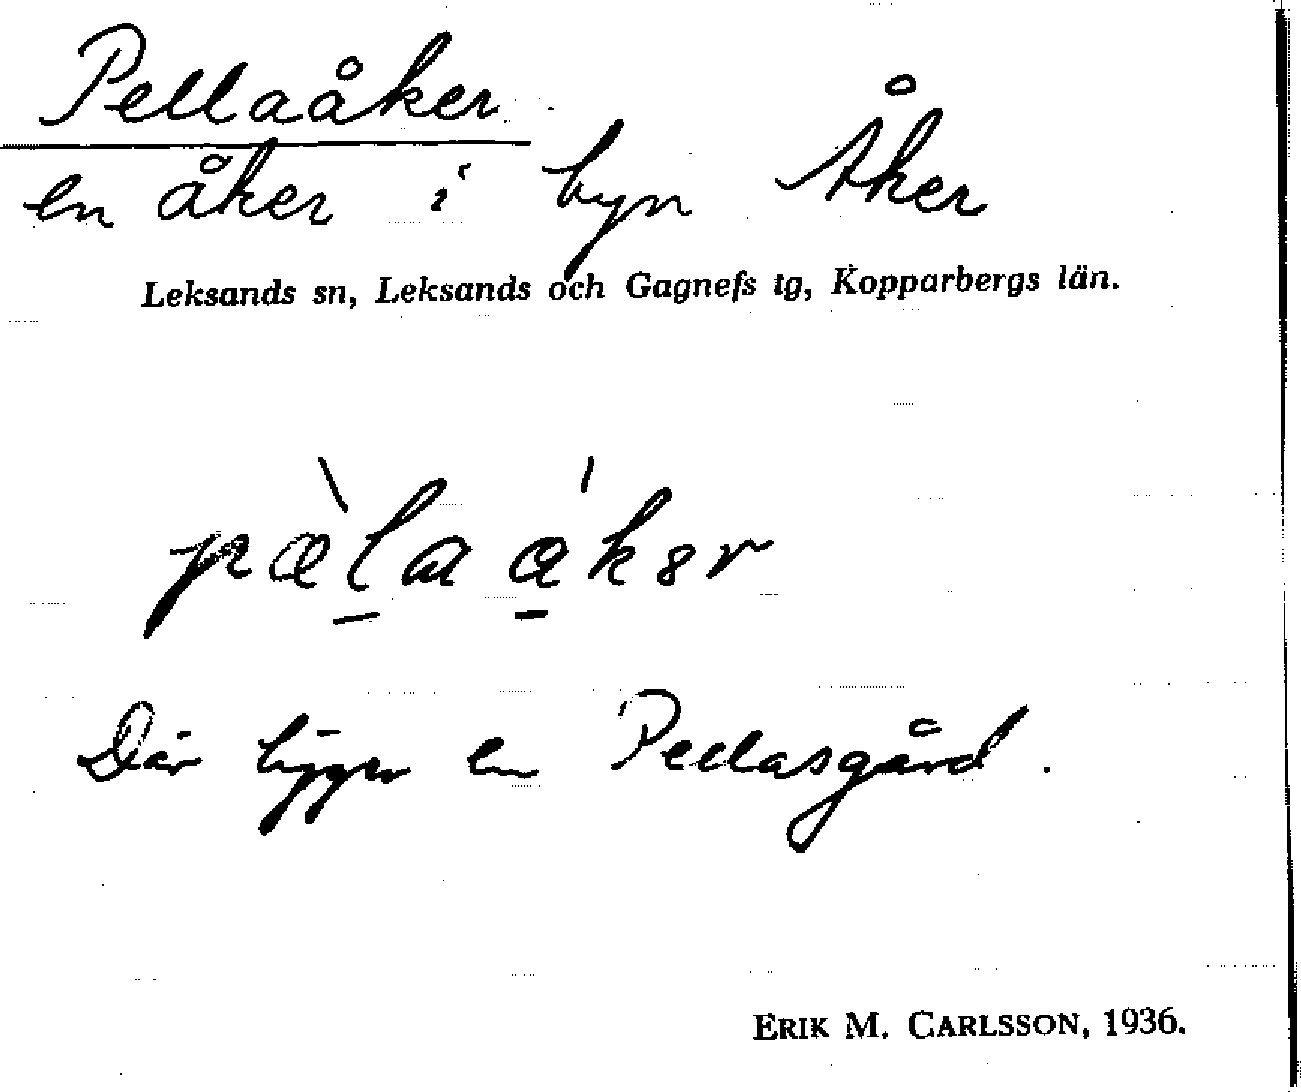 Pellaåker
en åker i byn Åker
Leksands sn, Leksands och Gagnefs tg, Kopparbergs län.
Där ligger en Pellasgård.
ERIK M. CARLSSON, 1936.